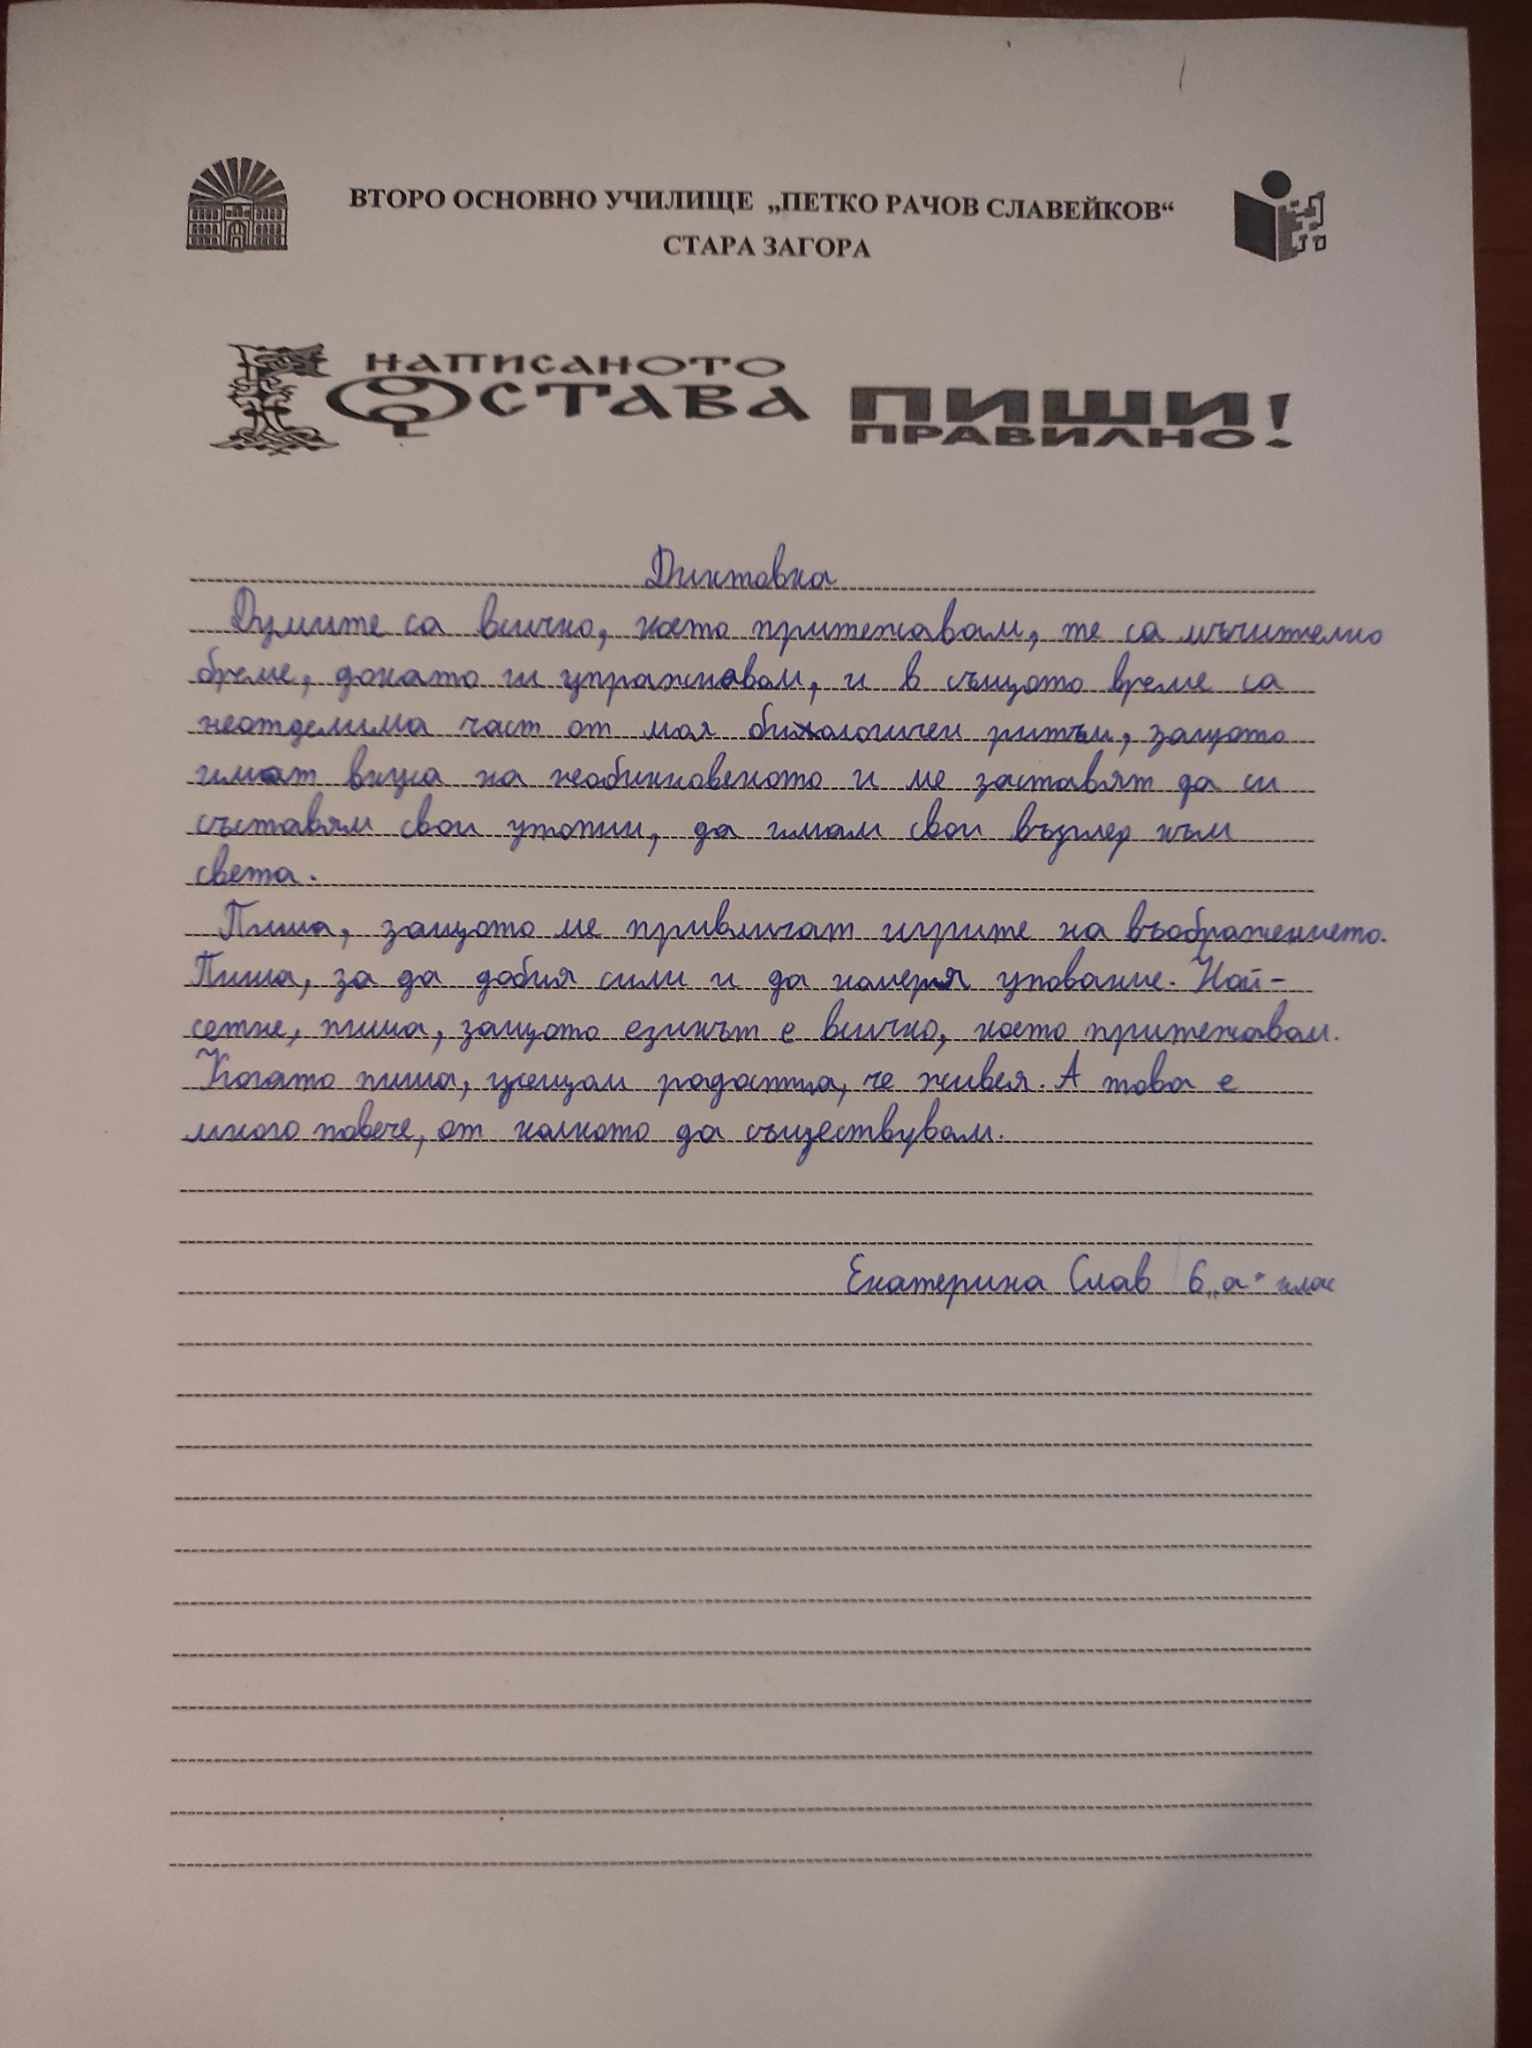 ВТОРО ОСНОВНО УЧИЛИЩЕ „ПЕТКО РАЧОВ СЛАВЕЙКОВ“
СТАРА ЗАГОРА
НАПИСАНОТО
ОСТАВА
ПИШИ
ПРАВИЛНО!
Диктовка
Думите са всичко, което притежавам, те са мъчително
бреме, докато ги упражнявам, и в същото време са
неотделима част от моя биологичен ритъм, защото
имат вкуса на необикновеното и ме заставят да си
съставям свои утопии, да имам свои възглед към
света.
Пиша, защото ме привличат игрите на въображението.
Пиша, за да добия сили и да намеря упование. Най-
сетне, пиша, защото езикът е всичко, което притежавам.
Когато пиша, усещам радостта, че живея. А това е
много повече, от колкото да съществувам.
Екатерина Слав 6 „а“ клас